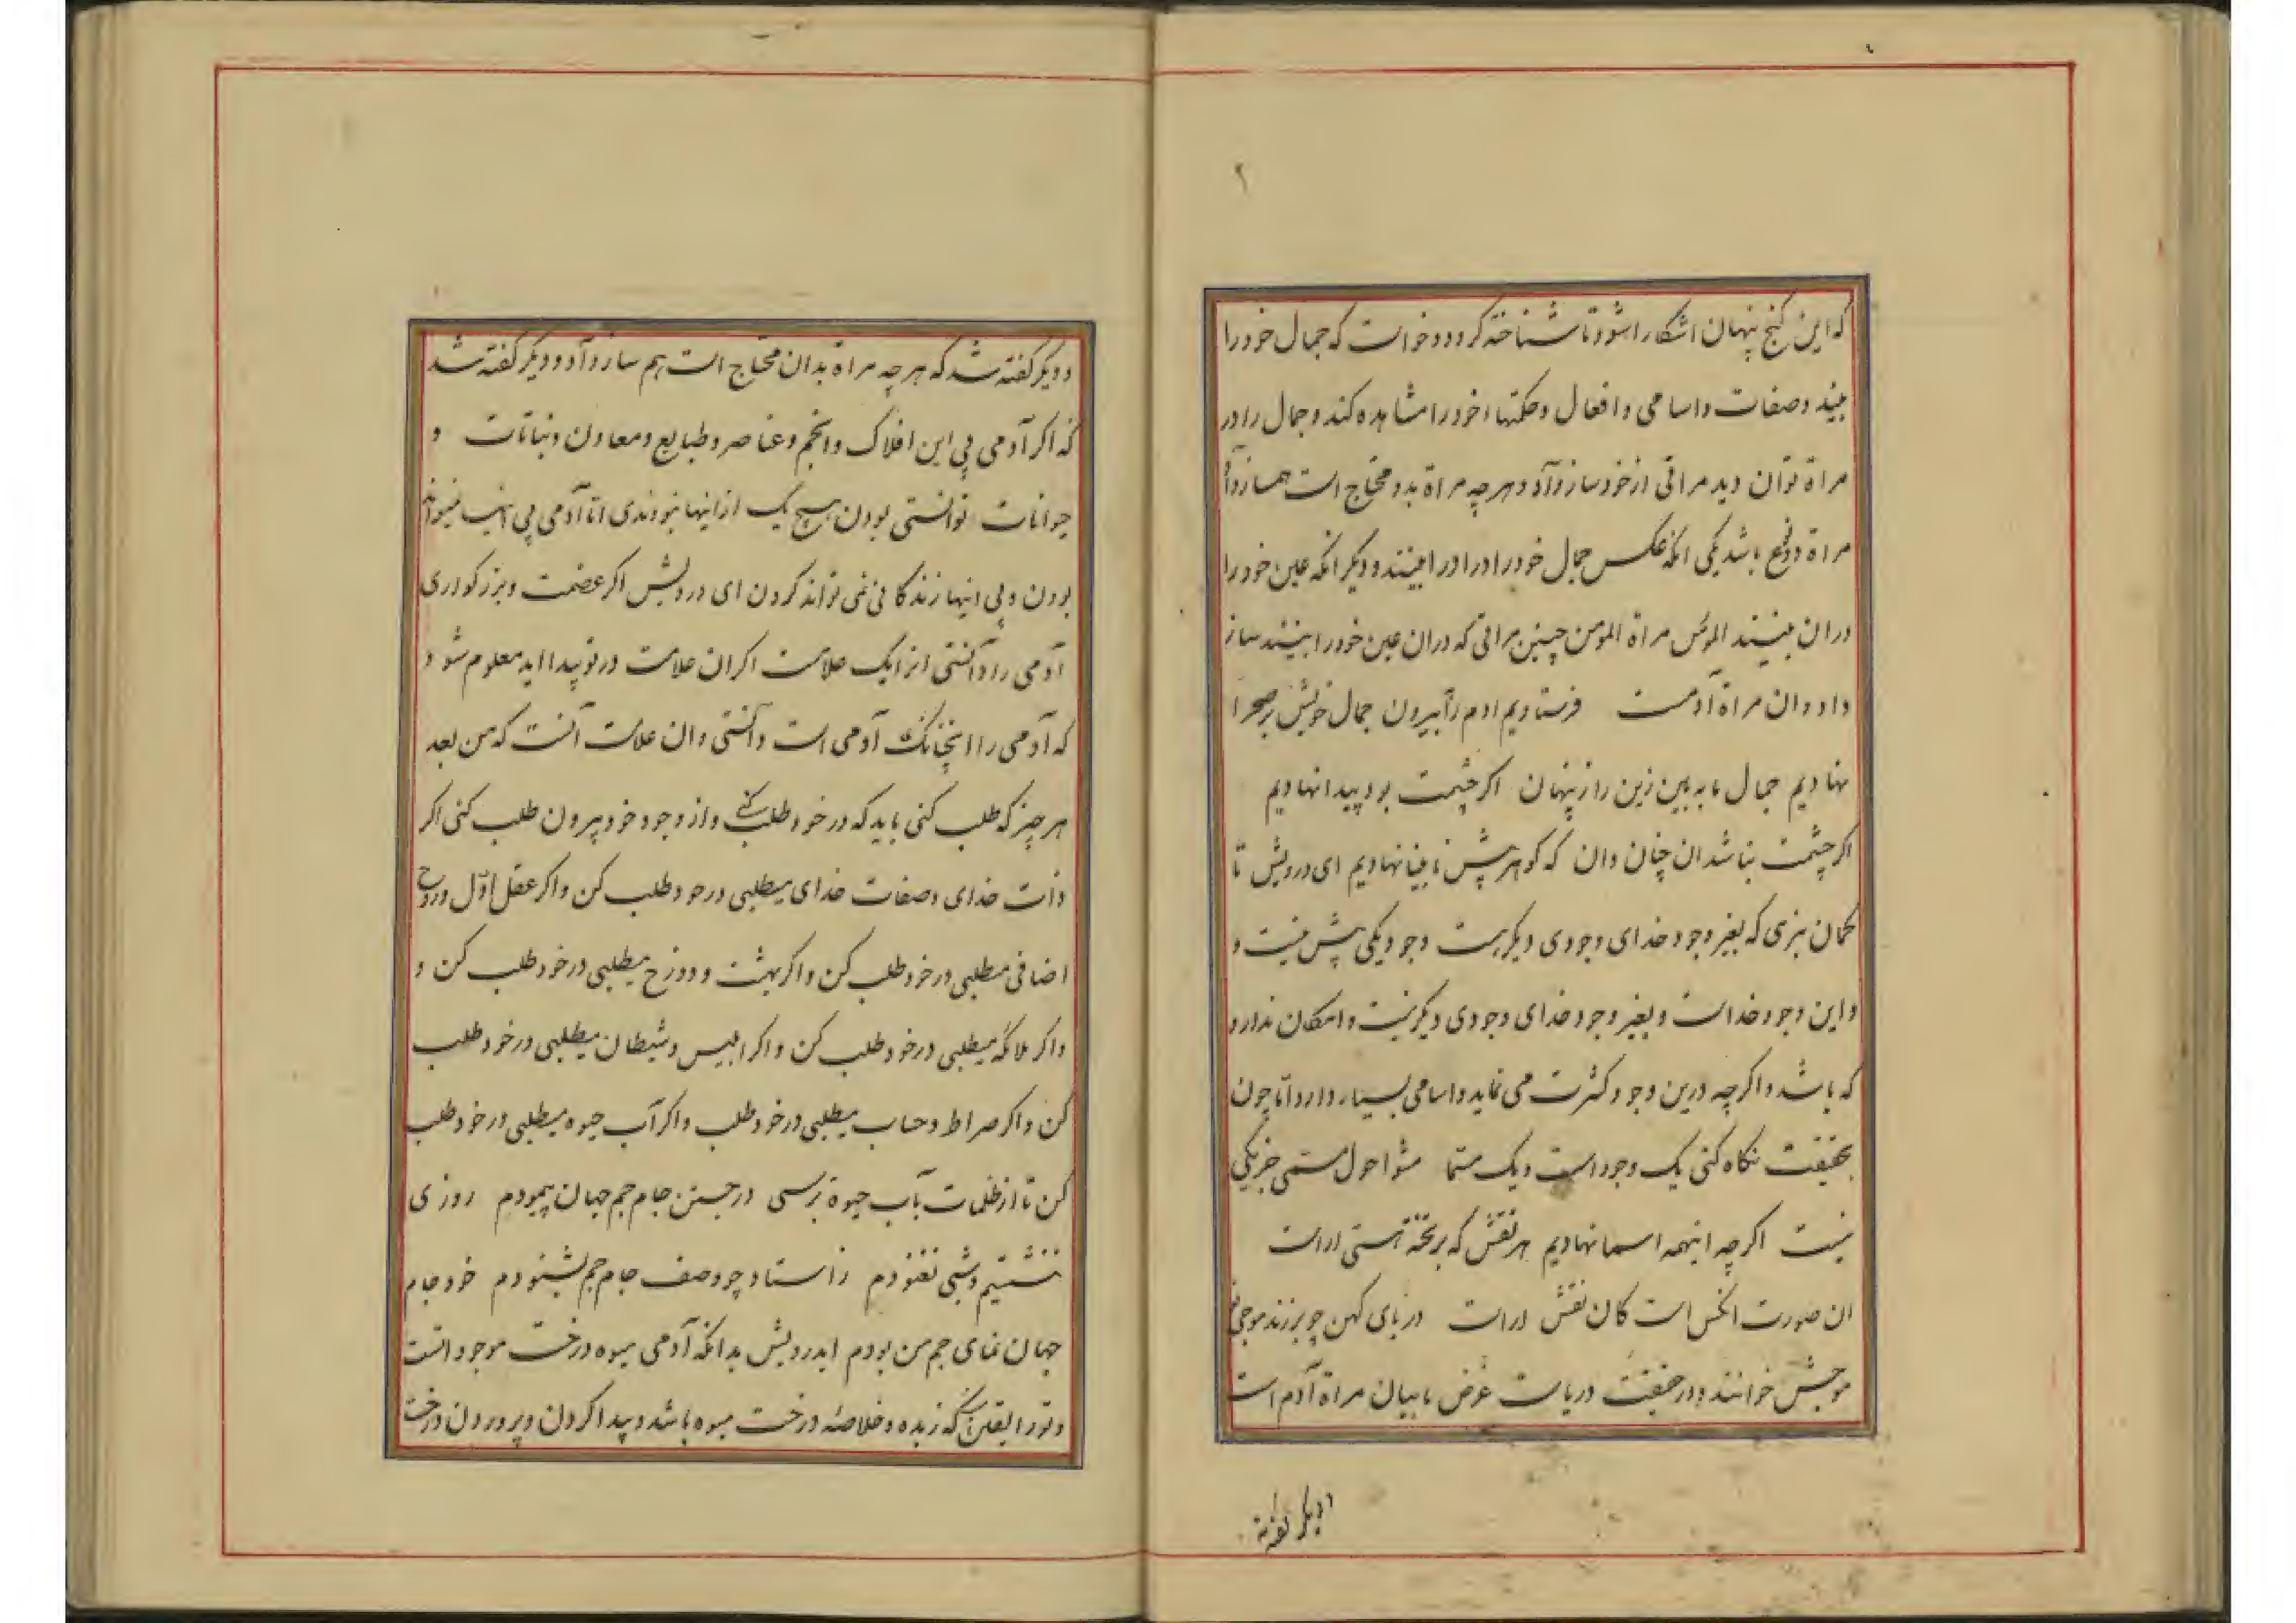 ۲
که این کنج پنهان اشکارا شود تا شناخته کردد و خواست که جمال خود را
بیند و صفات و اسامی و افعال و حکمتهاء خود را مشاهده کند و جمال را در
مراة توان دید مراتی از خود ساز داد و هرچه مراة بدو محتاج است هم ساز داد
مراة دو نوع باشد یکی انکه عکس جمال خود را در او را بینند و دیکر انکه عین خود را
در ان بینند المؤمن مراة المومن چنین مراتی که در ان عین خود را بینند ساز
داد و ان مراة آدمست فرستادیم ادم را بیرون جمال خویش بر صحرا
نهادیم جمال ما به بین زین راز پنهان اکر چشمت بود پیدا نهادیم
اکر چشمت نباشد ان چنان دان که کوهر پیش نابینا نهادیم ای درویش تا
کمان نبری که بغیر وجود خدای وجودی دیکر هست وجود یکی بیش نیست و
و این وجود خداست و بغیر وجود خدای وجودی دیکر نیست و امکان ندارد
که باشد و اکرچه درین وجود کثرت می نماید و اسامی بسیار دارد اما چون
بحقیقت نکاه کنی یک وجود است و یک مسما مشو احول مسمی جز یکی
نیست اکرچه اینهمه اسما نهادیم هر نقش که بر تخته هستی اراست
ان صورت انکس است کان نقش اراست دریای کهن چو برزند موجی نو
موجش خوانند و در حقیقت دریاست غرض ما بیان مراة آدم است
دیکر کفته
و دیکر کفته شد که هرچه مراة بدان محتاج است هم ساز داد و دیکر کفته شد
که اکر آدمی بی این افلاک و انجم و عناصر و طبایع و معادن و نباتات و
حیوانات توانستی بودن هیچ یک از اینها نبودندی اما آدمی بی اینها نمیتواند
بودن و بی اینها زندکانی نمی تواند کردن ای درویش اکر عضمت و بزرکواری
آدمی را دانستی انرا یک علامت اکر ان علامت در تو پیدا اید معلوم شود
که آدمی را اینچنانک آدمی است دانستی و ان علامت آنست که من بعد
هر چیز که طلب کنی باید که در خود طلب کنی و از وجود خود بیرون طلب کنی اکر
ذات خدای و صفات خدای میطلبی در خود طلب کن و اکر عقل اوّل و روح
اضافی میطلبی در خود طلب کن و اکر بهشت و دوزخ میطلبی در خود طلب کن و
و اکر ملائکه میطلبی در خود طلب کن و اکر ابلیس و شیطان میطلبی در خود طلب
کن و اکر صراط و حساب میطلبی در خود طلب و اکر آب حیوه میطلبی در خود طلب
کن تا از ظلمات بآب حیوة برسی در جستن جام جم جهان پیمودم روزی
ننشستیم و شبی نغنودم ز استاد چو وصف جام جم بشنودم خود جام
جهان نمای جم من بودم ایدرویش بدانکه آدمی میوه درخت موجوداتست
و تو را یقین که زبده و خلاصه درخت میوه باشد و پیدا کردن و پروردن درخت